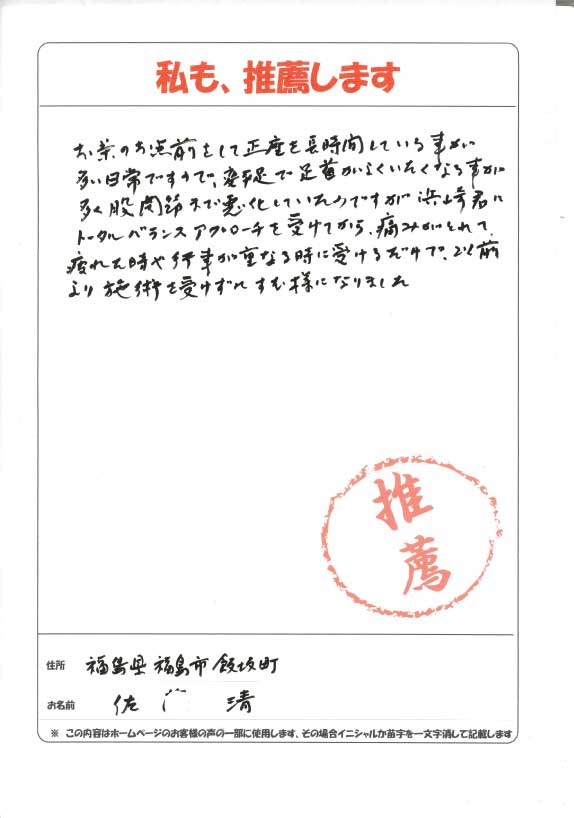 私も、推薦します
お茶のお点前をして正座を長時間している事が
多い日常ですので、変形足で足首がふくいたくなる事が
多く股関節まで悪化していたのですが浜崎君に
トータルバランスアプローチを受けてから、痛みがとれて、
疲れた時や行事が重なる時に受けるだけで、以前
より施術を受けずにすむ様になりました
推薦
住所 福島県福島市飯坂町
お名前 佐 清
※ この内容はホームページのお客様の声の一部に使用します、その場合イニシャルか苗字を一文字消して記載します